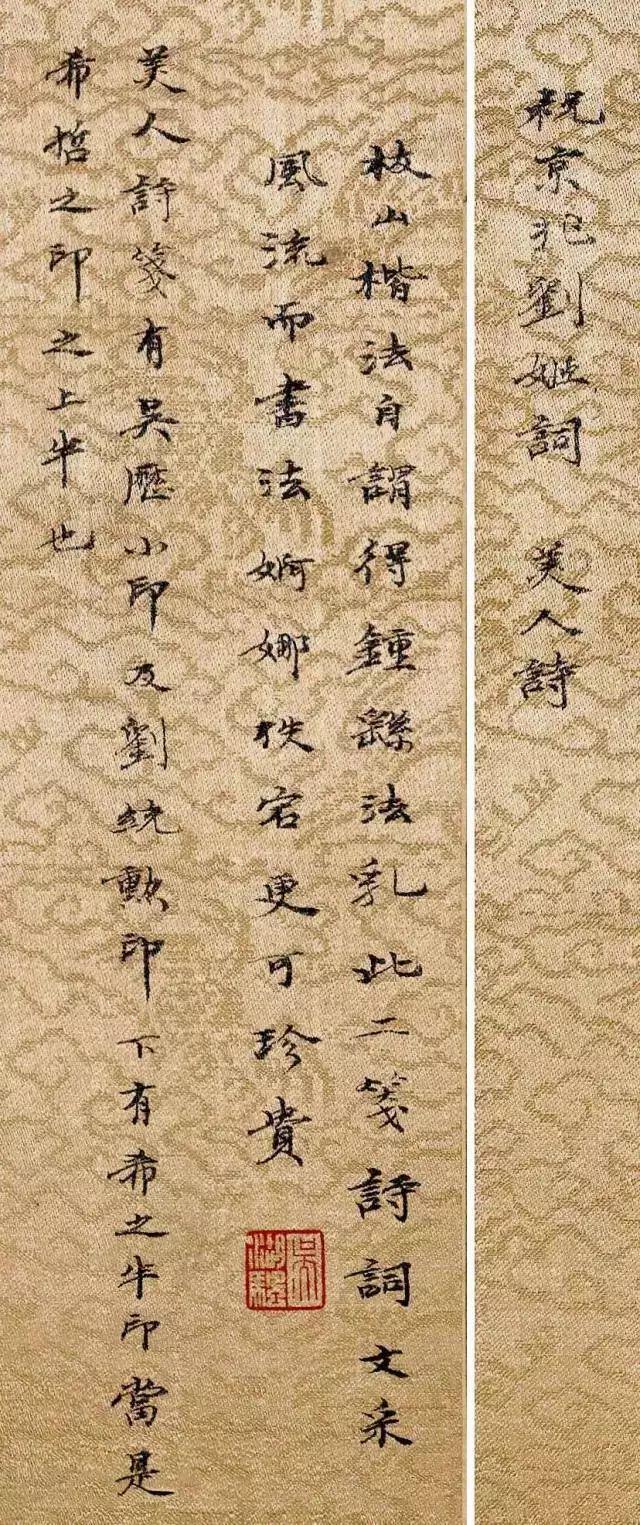 祝京兆劉姬詞 美人詩
枝山楷法自謂得鍾繇法乳此二箋詩詞文采
風流而書法婀娜宕更可珍貴
美人詩箋有吳歷小印及劉統勳印 下有希之半印當是
希哲之印之上半也